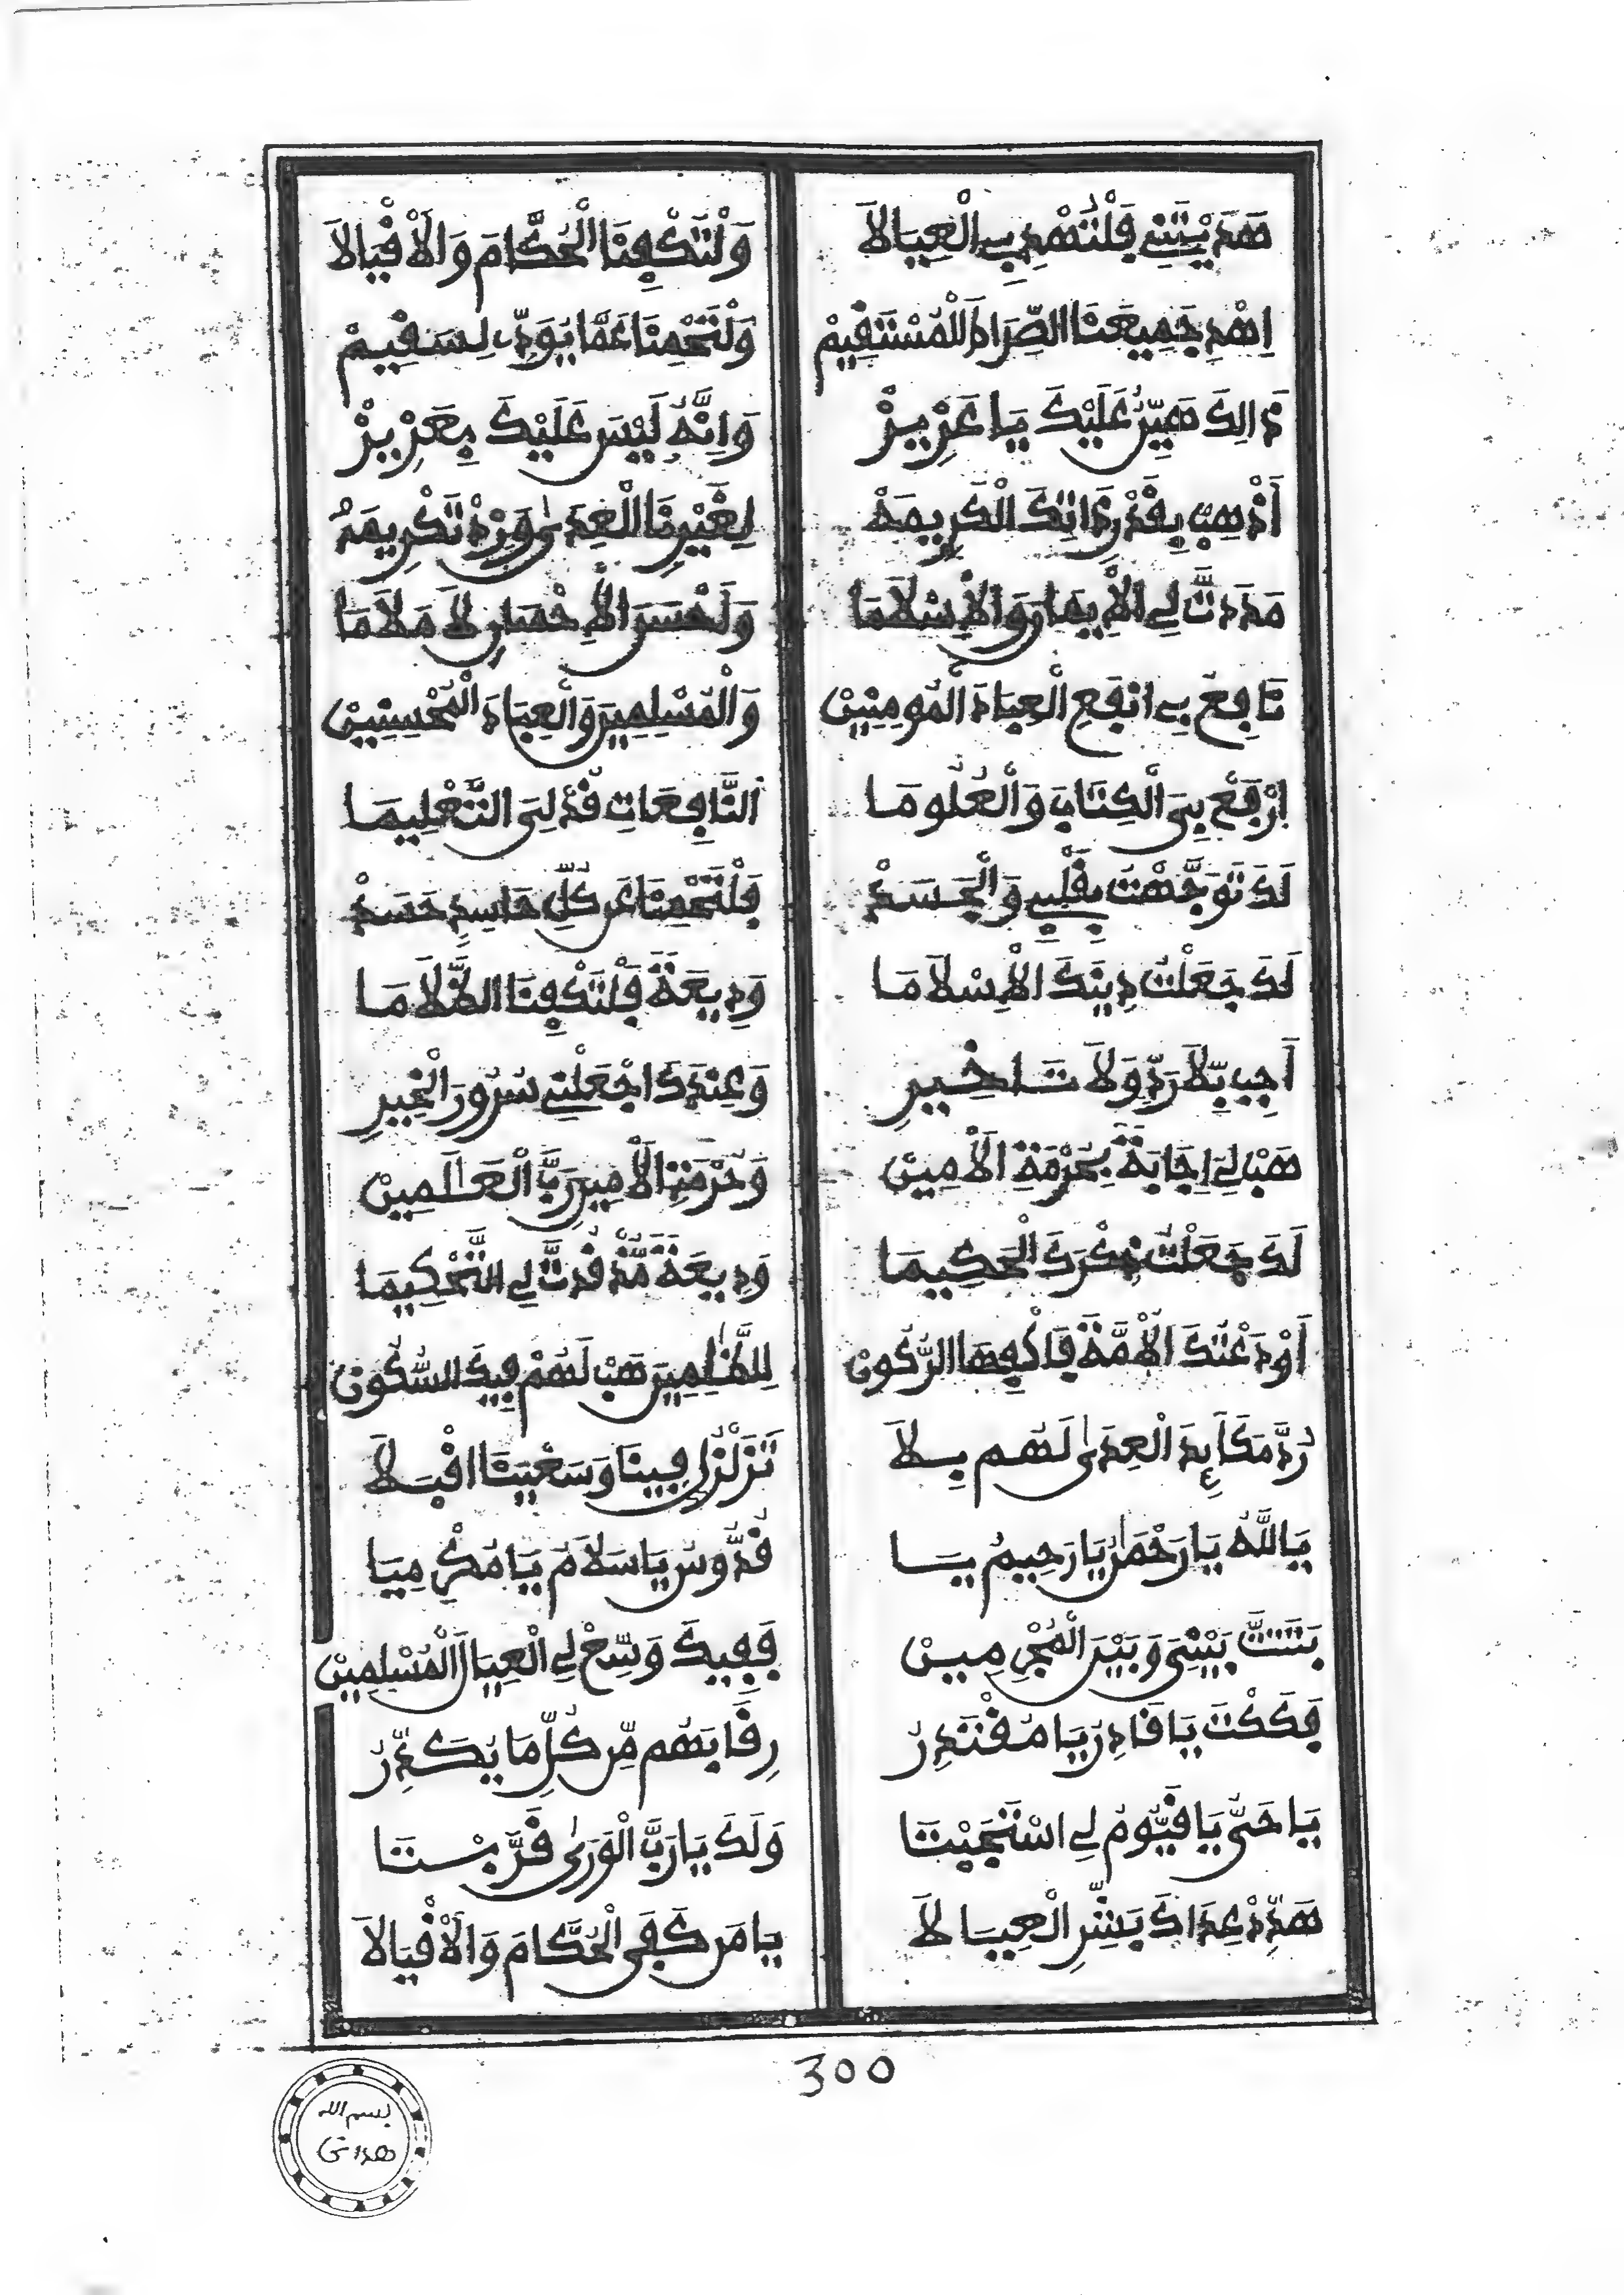 هَدَيْتَنِي فَلْتَهْدِ بِي الْعِيَالَا وَلْتَكْفِنَا الْحُكَّامَ وَالْأَقْيَالَا
اِهْدِ جَمِيعَنَا الصِّرَاطَ الْمُسْتَقِيمْ وَلْتَحْمِنَا عَمَّا يُوَدِّي لِسَقِيمْ
ذَالِكَ هَيِّنٌ عَلَيْكَ يَا عَزِيزْ وَإِنَّهُ لَيْسَ عَلَيْكَ بِعَزِيزْ
أَذْهِبْ بِقَدْرِ ذَاتِكَ الْكَرِيمَهْ لِغَيْرِنَا الْعِدَى وَزِدْ تَكْرِيمَهْ
مَدَدتَّ لِي الْإِيمَانَ وَالْإِسْلَامَا وَلَحْسَنَ الْإِحْسَانِ لَا مَلَامَا
نَافِعَ بِي انْفَعِ الْعِبَادَ الْمُومِنِينْ وَالْمُسْلِمِينَ وَالْعِبَادَ الْمُحْسِنِينْ
اِرْفَعْ بِيَ الْكِتَابَ وَالْعُلُومَا النَّافِعَاتِ قُدْ لِيَ التَّعْلِيمَا
لَكَ تَوَجَّهْتُ بِقَلْبِي وَالْجَسَدْ فَلْتَحْمِنَا عَن كُلِّ حَاسِدٍ حَسَدْ
لَكَ جَعَلْتُ دِينَكَ الْإِسْلَامَا وَدِيعَةً فَلْتَكْفِنَا الظَّلَامَا
أَجِبْ بِلَا رَدٍّ وَلَا تَاخِيرِ وَعِنْدَكَ اجْعَلْنِي سُرُورَ الْخِيرِ
هَبْ لِي إِجَابَةً بِحُرْمَةِ الْأَمِينْ وَحُرْمَةِ الْأَمِينِ رَبَّ الْعَالَمِينْ
لَكَ جَعَلْتُ ذِكْرَكَ الْحَكِيمَا وَدِيعَةً مُّذْ قُدتَّ لِي التَّحْكِيمَا
أَوْدَعْتُكَ الْأُمَّةَ فَاكْفِهَا الرُّكُونْ لِلظَّالِمِينَ هَبْ لَهُمْ فِيكَ السُّكُونْ
رُدَّ مَكَايِدَ الْعِدَى لَهُم بِلَا تَزَلْزُلٍ فِينَا وَسَعْيَنَا اقْبَلَا
يَا اللَّهُ يَا رَحْمَانُ يَا رَحِيمُ يَا قُدُّوسُ يَا سَلَامُ يَا مُكَرِّمِيَا
بَتَتَّ بَيْنِيَ وَبَيْنَ الْمُجْرِمِينْ فَفِيكَ وَسِّعْ لِي الْعِيَالَ الْمُسْلِمِينْ
فَكَكْتَ يَا قَادِرُ يَا مُقْتَدِرُ رِقَابَهُم مِّن كُلِّ مَا يُكَدِّرُ
يَا حَيُّ يَا قَيُّومُ لِي اسْتَجَبْتَا وَلَكَ يَا رَبَّ الْوَرَى قَرَّبْتَا
هَدِّدْ عِدَاكَ بَشِّرِ الْعِيَالَا يَا مَن كَفَى الْحُكَّامَ وَالْأَقْيَالَا
300
بسم الله